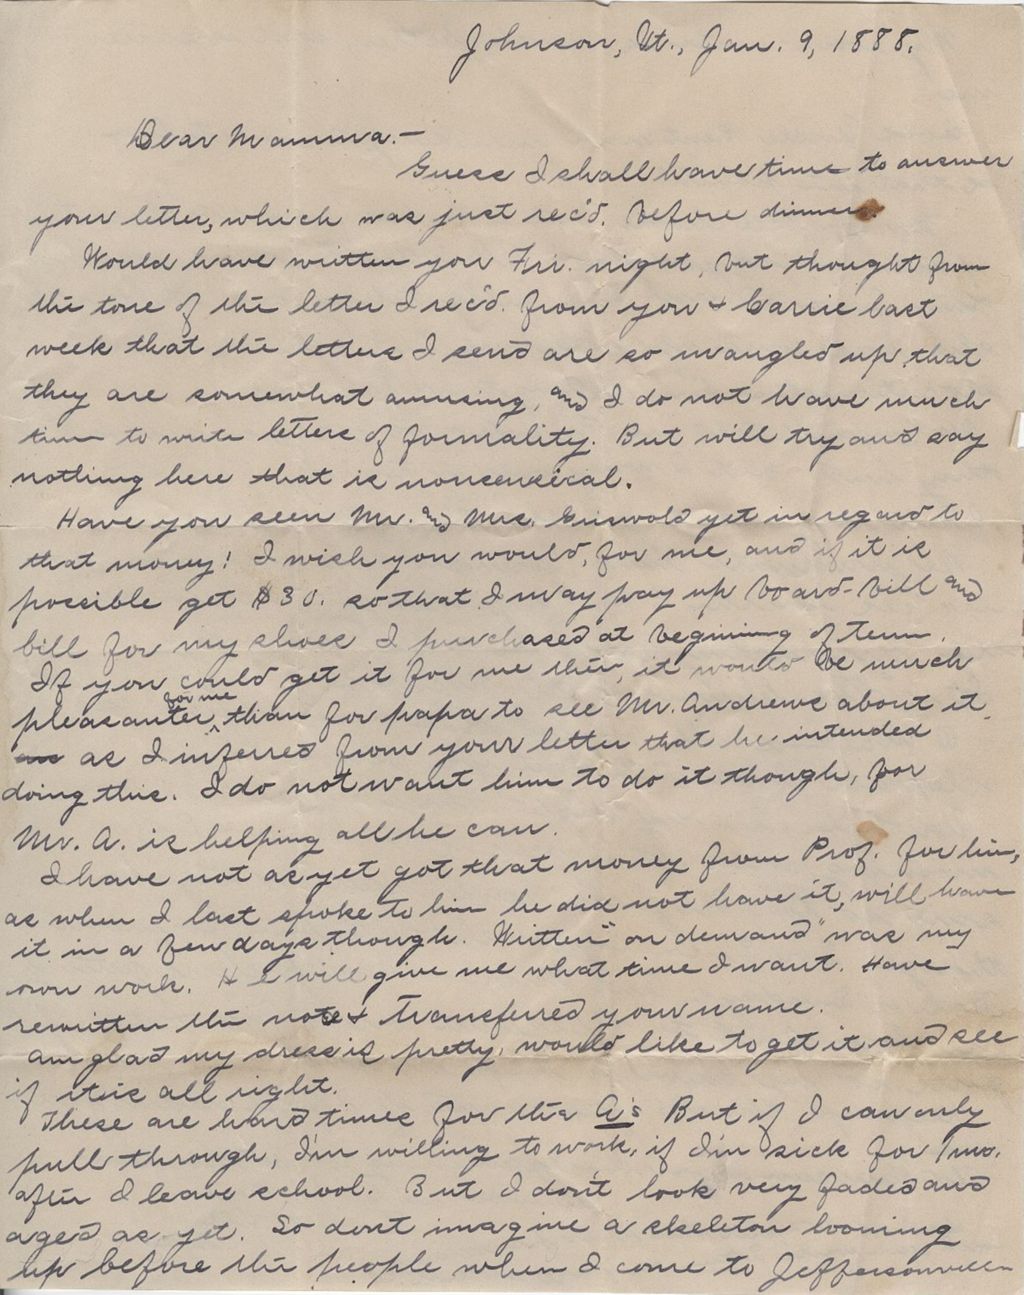 Johnson, Vt., Jan. 9, 1888.
Dear Mamma.-
Guess I shall have time to answer
your letter, which was just rec'd. before dinner.
Would have written you Fri. night, but thought from
the tone of the letter I rec'd. from you & Carrie last
week that the letters I send are so mangled up that
they are somewhat amusing, and I do not have much
time to write letters of formality. But will try and say
nothing here that is nonsensical.
Have you seen Mr. and Mrs. Griswold yet in regard to
that money! I wish you would, for me, and if it is
possible get $30. so that I may pay up board-bill and
bill for my shoes I purchased at begining of term.
If you could get it for me then, it would be much
pleasanter for me than for papa to see Mr. Andrews about it,
as I inferred from your letter that he intended
doing this. I do not want him to do it though, for
Mr. A. is helping all he can.
I have not as yet got that money from Prof. for him,
as when I last spoke to him he did not have it, will have
it in a few days though. Written "on demand" was my
own work. He will give me what time I want. Have
rewritten the note & transferred your name.
am glad my dress is pretty, would like to get it and see
if it is all right.
These are hard times for the A's But if I can only
pull through, I'm willing to work, if I'm sick for 1 mo.
after I leave school. But I don't look very faded and
aged as yet. So dont imagine a skeleton looming
up before the people when I come to Jeffersonville